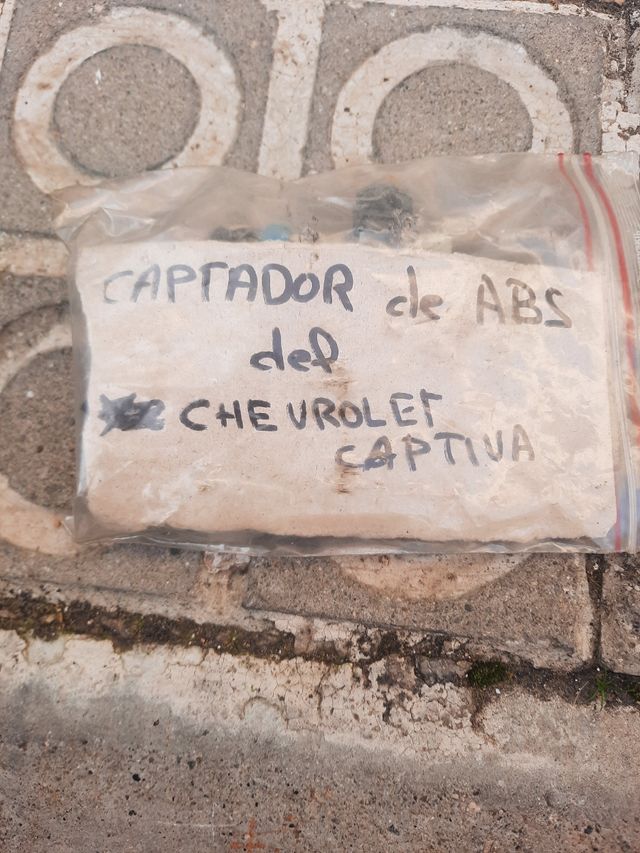 CAPTADOR de ABS
del
CHEVROLET
CAPTIVA